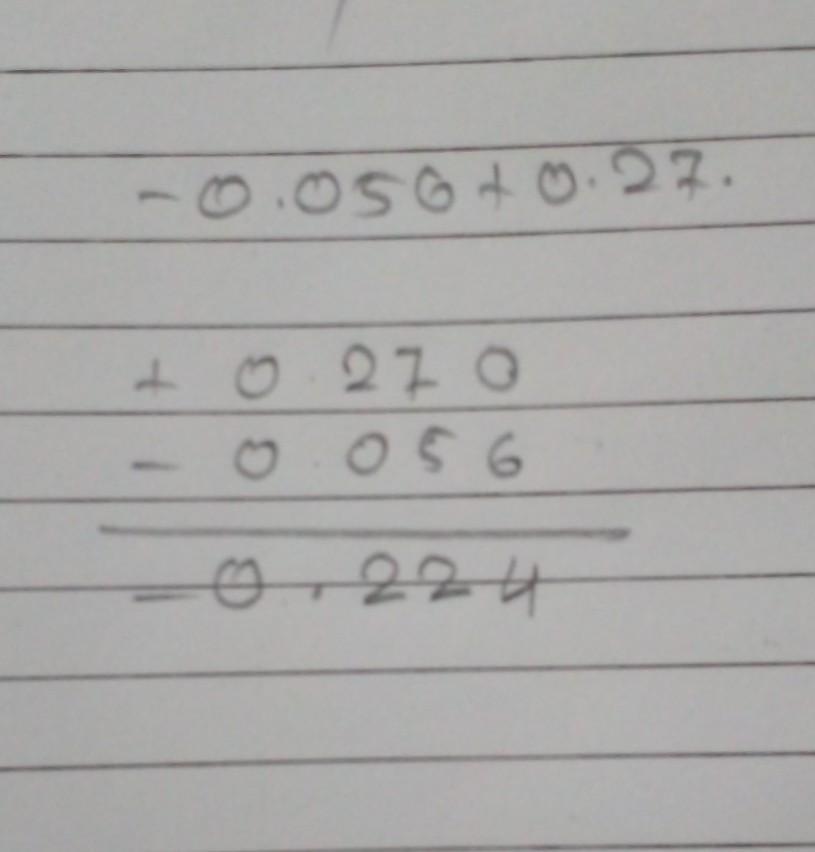 -0.056+0.27.
+ 0.270
- 0.056
-0.224